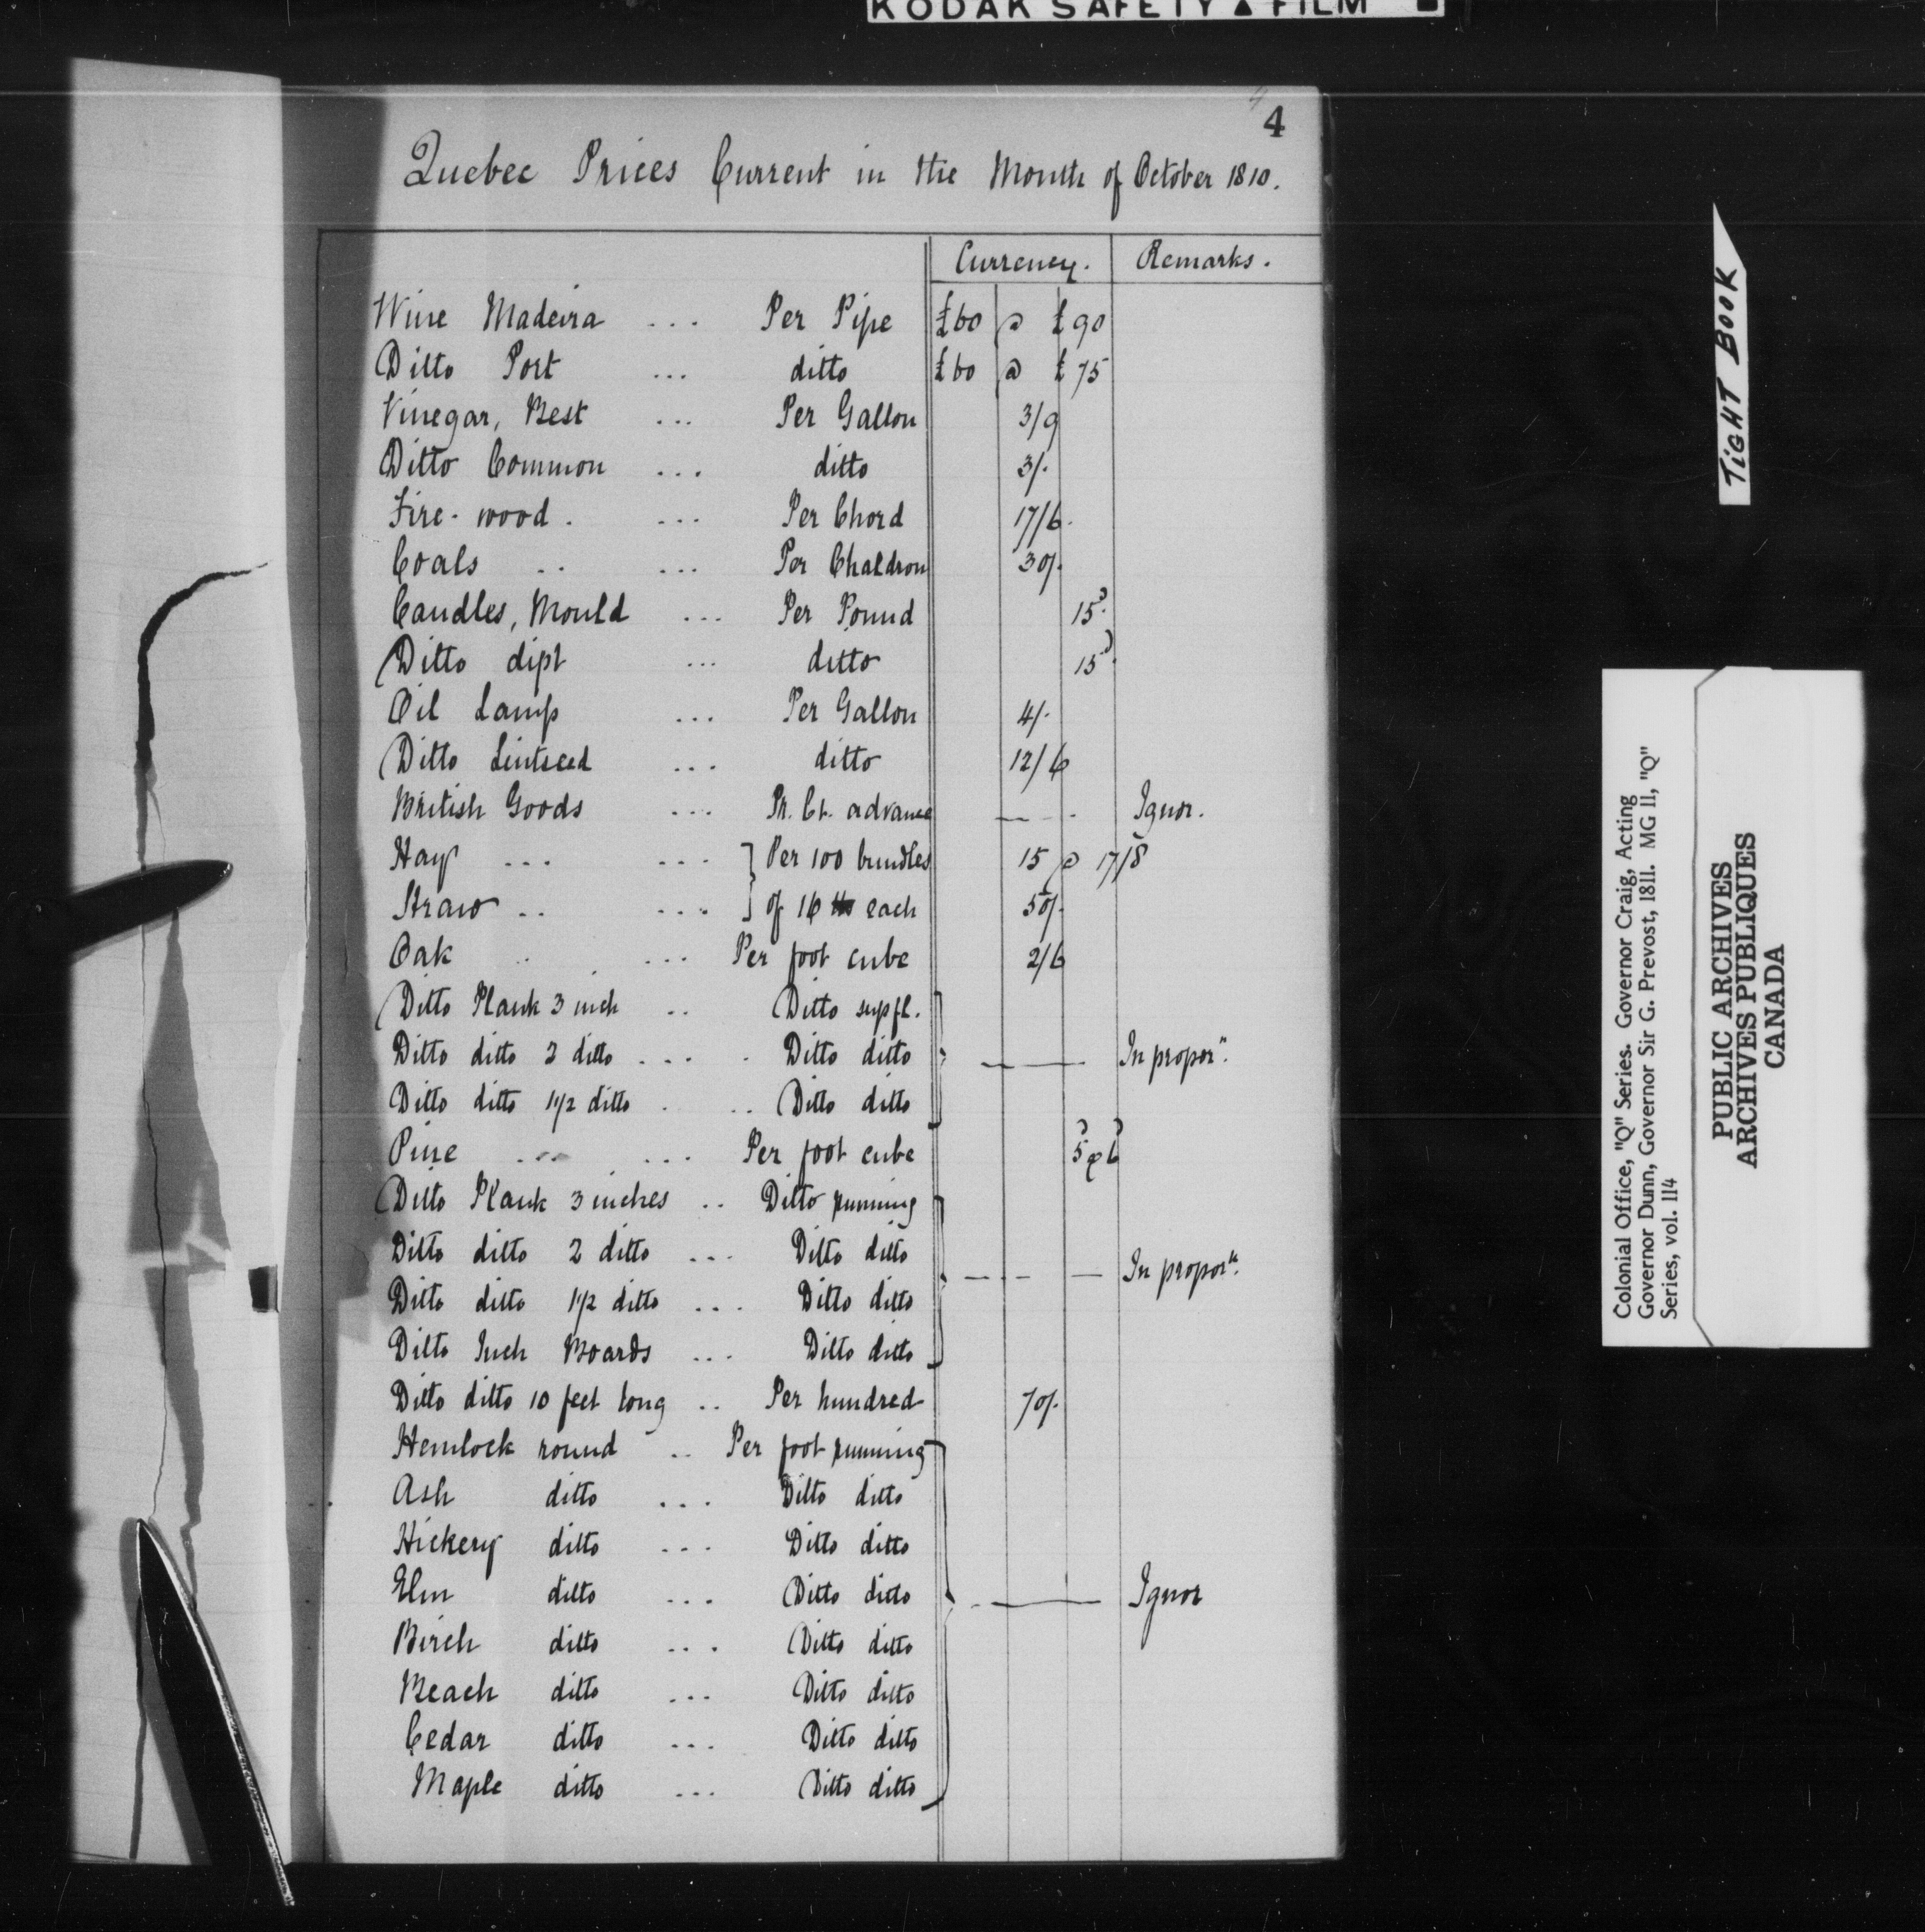 KODAK SAFETY ▲ FILM
4
Quebec Prices Current in the Month of October 1810.
Currency. Remarks.
Wine Madeira ... Per Pipe £60 @ £90
Ditto Port ... ditto £60 @ £75
Vinegar, Best ... Per Gallon 3/9
Ditto Common ... ditto 3/.
Fire-wood. ... Per Chord 17/6.
Coals .. ... Per Chaldron 30/.
Candles, Mould ... Per Pound 15d.
Ditto dipt ... ditto 15d.
Oil Lamp ... Per Gallon 4/.
Ditto Lintseed ... ditto 12/6
British Goods ... Pr. Ct. advance — . Ignor.
Hay ... ... } Per 100 bundles 15 @ 17/8
Straw .. ... } of 16 lbs each 50/.
Oak .. ... Per foot cube 2/6
Ditto Plank 3 inch .. Ditto supfl.
Ditto ditto 2 ditto ... . Ditto ditto — In propor".
Ditto ditto 1½ ditto . .. Ditto ditto
Pine ... ... Per foot cube 5d @ 6d
Ditto Plank 3 inches .. Ditto running
Ditto ditto 2 ditto ... Ditto ditto — — In propor".
Ditto ditto 1½ ditto ... Ditto ditto
Ditto Inch Boards ... Ditto ditto
Ditto ditto 10 feet long .. Per hundred 70/.
Hemlock round .. Per foot running
Ash ditto ... Ditto ditto
Hickery ditto ... Ditto ditto
Elm ditto ... Ditto ditto — Ignor
Birch ditto ... Ditto ditto
Beach ditto ... Ditto ditto
Cedar ditto ... Ditto ditto
Maple ditto ... Ditto ditto
TIGHT BOOK
Colonial Office, "Q" Series. Governor Craig, Acting
Governor Dunn, Governor Sir G. Prevost, 1811. MG 11, "Q"
Series, vol. 114
PUBLIC ARCHIVES
ARCHIVES PUBLIQUES
CANADA